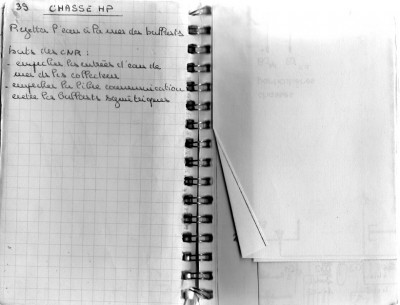 39 CHASSE HP
Rejetter l'eau à la mer des ballasts
buts des CNR :
- empecher les entrées d'eau de
mer ds les collecteurs
- empecher la libre communication
entre les ballasts symétriques